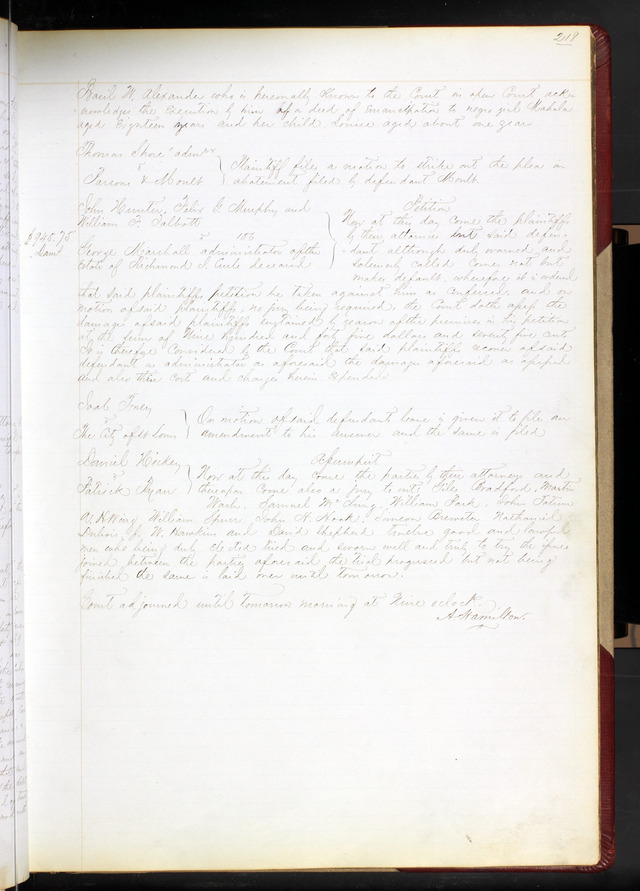 218
Basil W. Alexander who is personally known to the Court in open Court ack-
nowledges the Execution by him of a deed of Emancipation to negro girl Mahala
aged Eighteen years and her child Louisa aged about one year
Thomas Shore admr
v
Parsons & Moult
Plaintiff files a motion to strike out the plea in
abatement filed by defendant Moult
John Hunter, Felix G. Murphy and
William F. Talbott
v
George Marshall administrator of the
Estate of Richmond J. Curle deceased
$945.75
Petition
Now at this day come the plaintiffs
by their attornies but said defen-
dant although duly warned and
solemnly called comes not but
makes default, wherefore it is ordered
that said plaintiffs petition be taken against him as confessed, and on
motion of said plaintiffs, no jury being required, the Court doth assess the
damages of said plaintiffs sustained by reason of the premises in the petition
at the sum of Nine hundred and forty five dollars and seventy five cents
It is therefore Considered by the Court that said plaintiffs recover of said
defendant as administrator as aforesaid the damages aforesaid as assessed
and also their costs and charges herein expended
v
The City of St Louis
On motion of said defendant leave is given it to file an
amendment to his answer and the same is filed
Daniel Hickey
v
Patrick Ryan
Assumpsit
Now at this day come the parties by their attorneys and
thereupon Come also a jury to wit, Silas Bradford, Martin
Wash, Samuel McClung, William Park, John Tatum
William Spurr, John H. Hook, Simeon Brewster Nathaniel
W. Hawkins and David Shepherd twelve good and lawful
men who being duly elected tried and sworn well and truly to try the issue
joined between the parties aforesaid the trial progressed but not being
finished the same is laid over until tomorrow.
Court adjourned until tomorrow morning at Nine o'clock.
A. Hamilton.